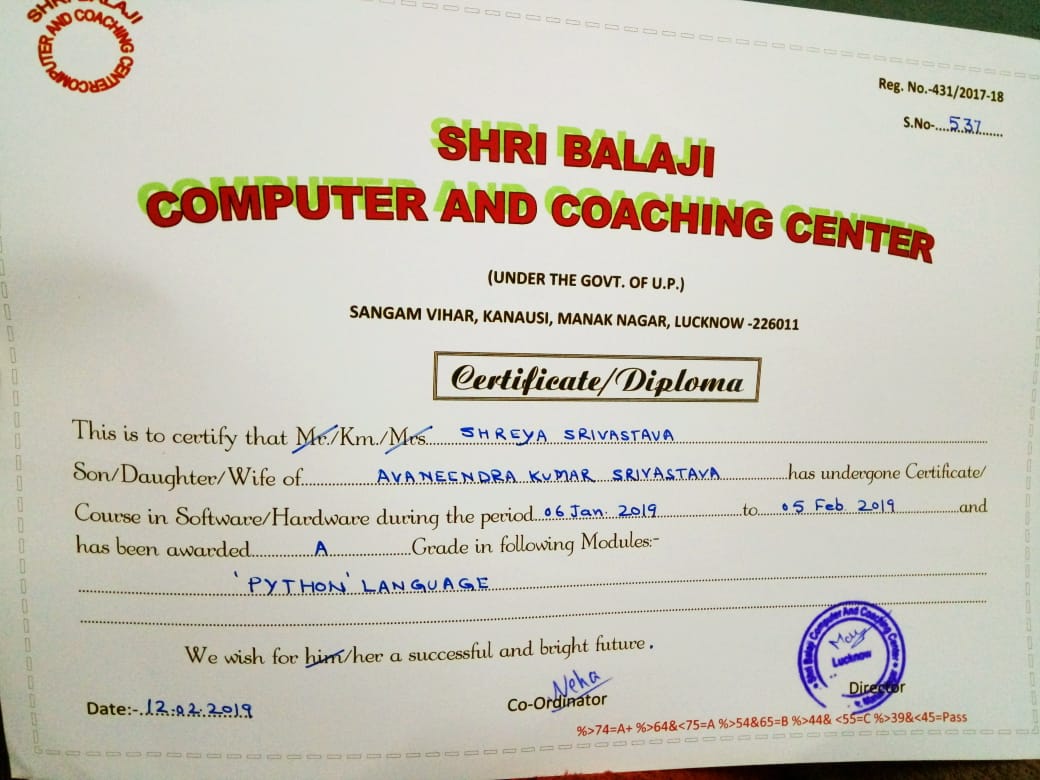 SHRI BALAJI
COMPUTER AND COACHING CENTER
Reg. No.-431/2017-18
S.No-....537.......
SHRI BALAJI
COMPUTER AND COACHING CENTER
(UNDER THE GOVT. OF U.P.)
SANGAM VIHAR, KANAUSI, MANAK NAGAR, LUCKNOW -226011
Certificate/Diploma
This is to certify that Mr./Km./Mrs. SHREYA SRIVASTAVA
Son/Daughter/Wife of AVANEENDRA KUMAR SRIVASTAVA has undergone Certificate/
Course in Software/Hardware during the period 06 Jan. 2019 to 05 Feb 2019 and
has been awarded A Grade in following Modules:-
'PYTHON' LANGUAGE
We wish for him/her a successful and bright future.
Date:- 12.02.2019
Neha
Co-Ordinator
Shri Balaji Computer And Coaching Center
Lucknow
Director
%>74=A+ %>64&<75=A %>54&65=B %>44& <55=C %>39&<45=Pass